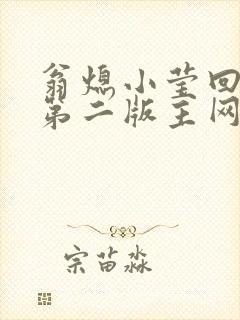 翁熄小莹回
第二版主网
宗苗淼